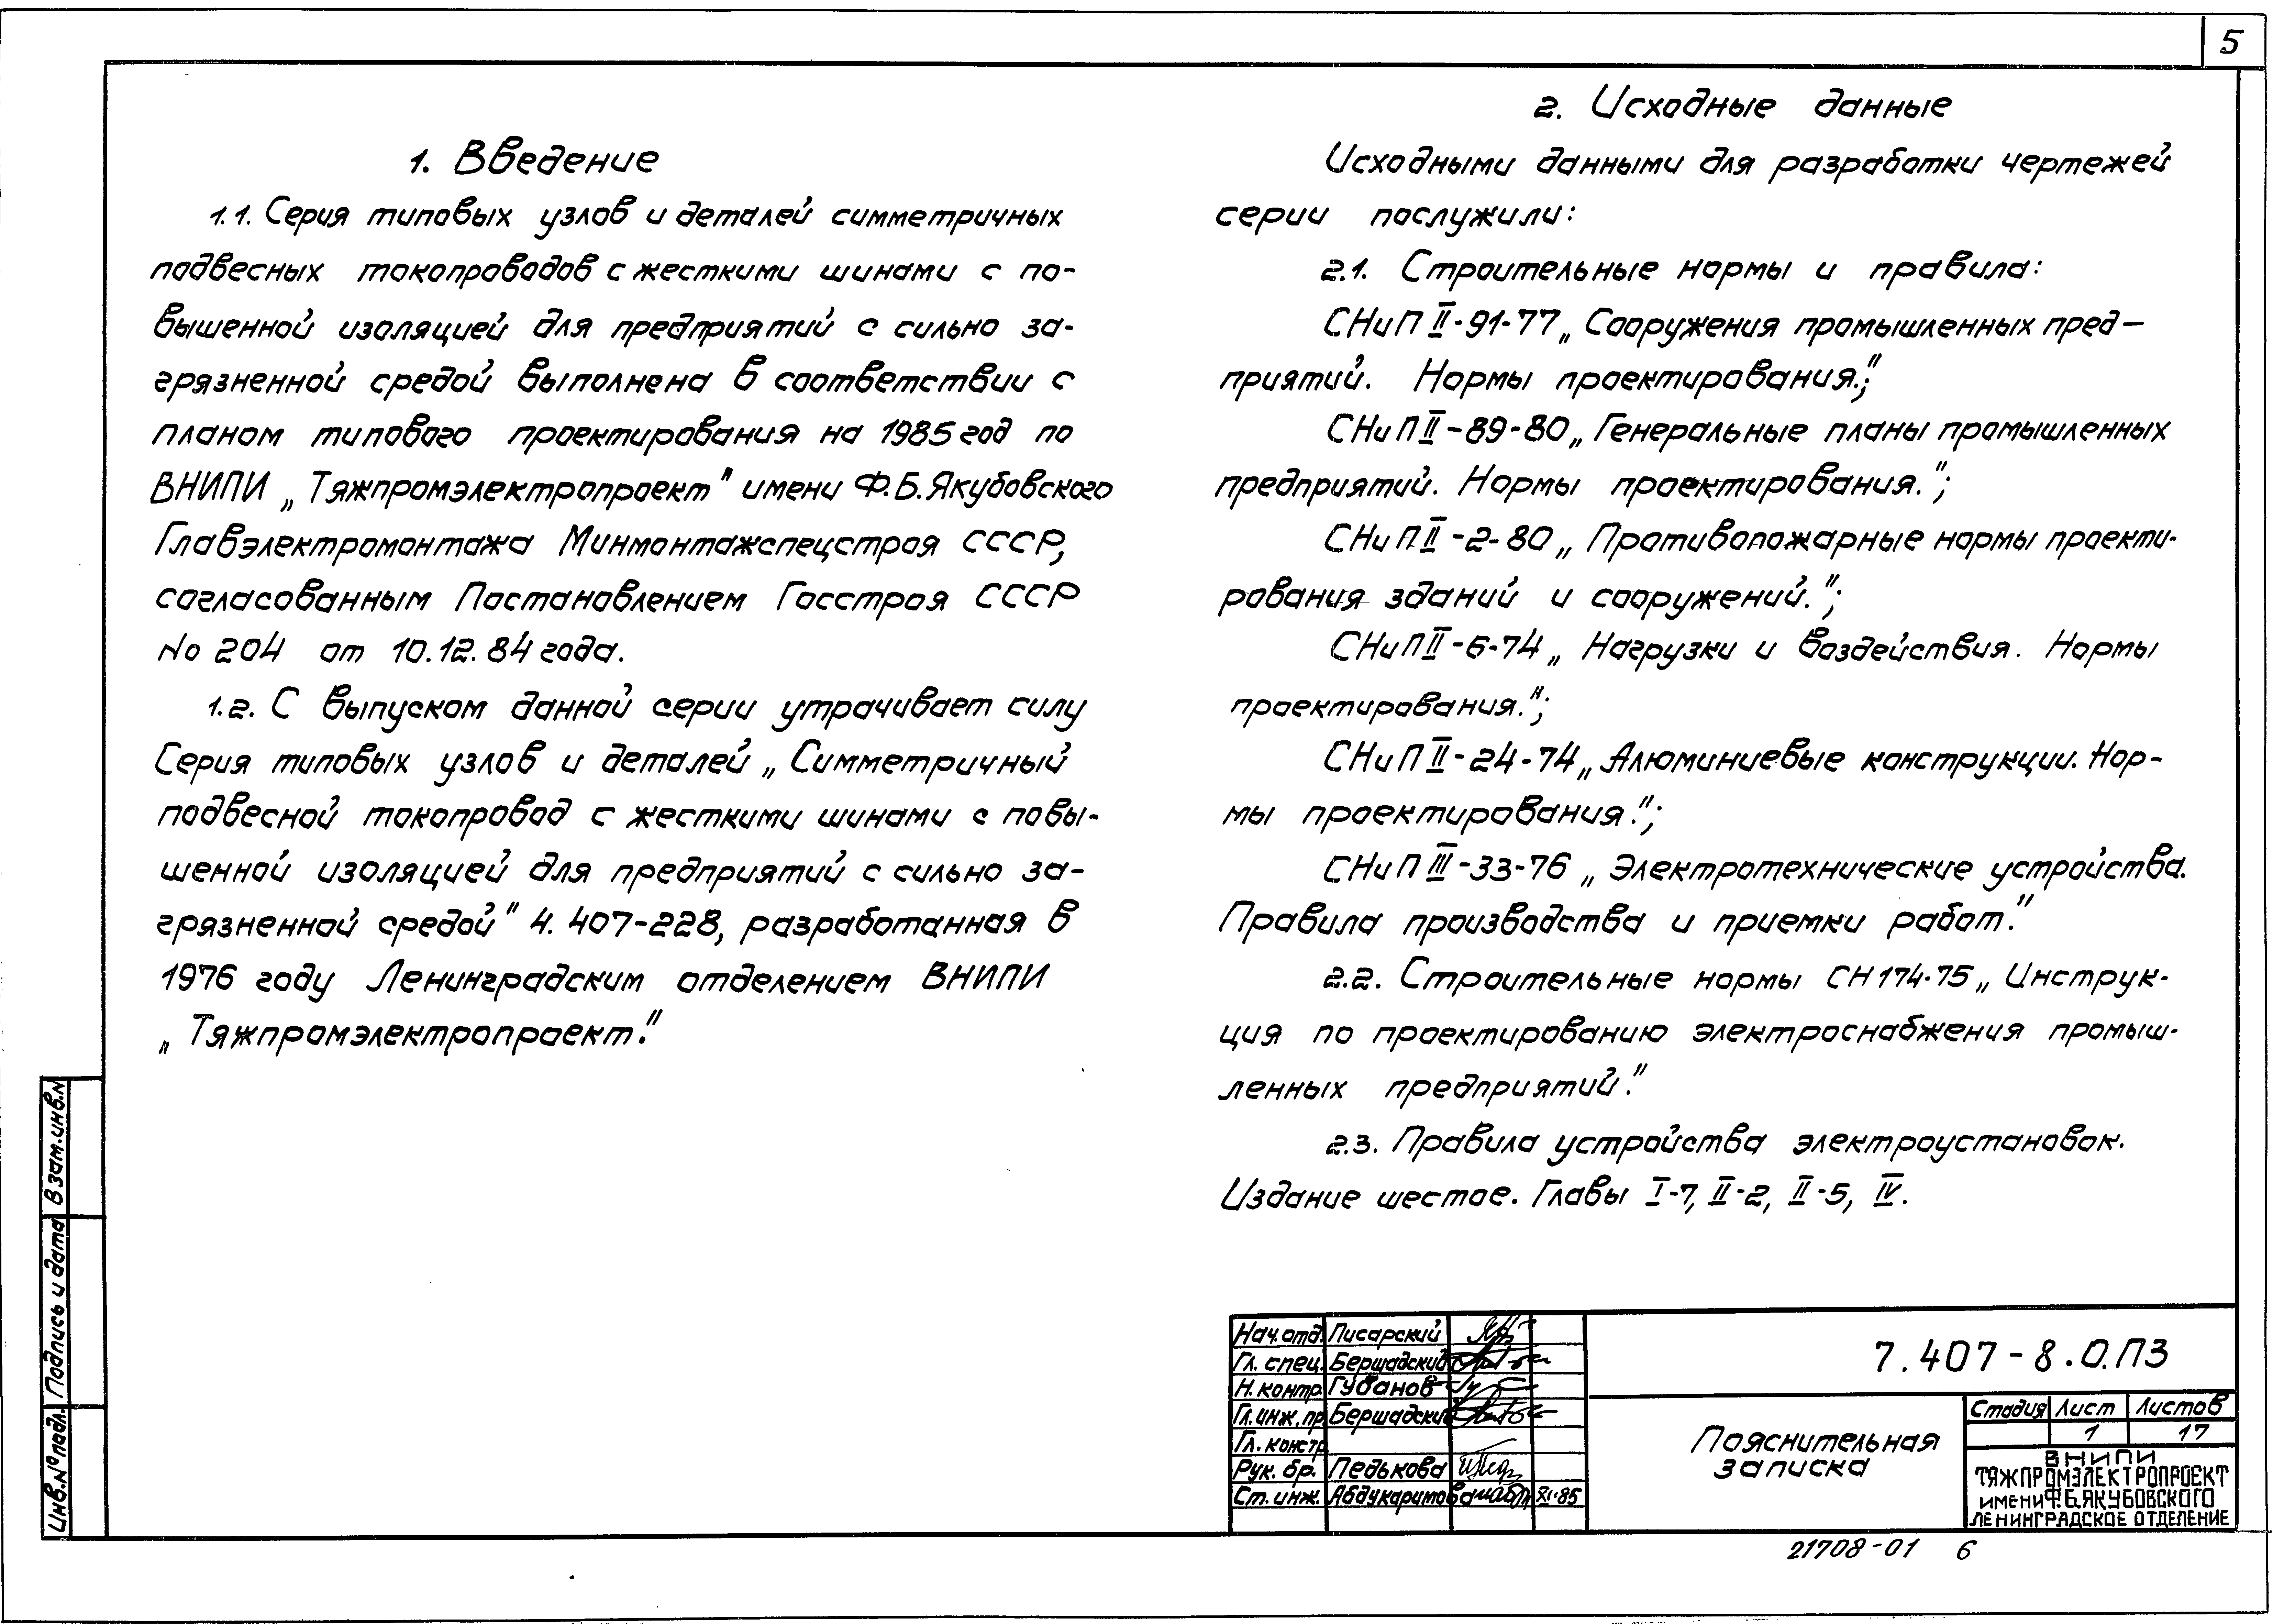 5
1. Введение
1.1. Серия типовых узлов и деталей симметричных
подвесных токопроводов с жесткими шинами с по-
вышенной изоляцией для предприятий с сильно за-
грязненной средой выполнена в соответствии с
планом типового проектирования на 1985 год по
ВНИПИ „Тяжпромэлектропроект" имени Ф.Б.Якубовского
Главэлектромонтажа Минмонтажспецстроя СССР,
согласованным Постановлением Госстроя СССР
No 204 от 10.12.84 года.
1.2. С выпуском данной серии утрачивает силу
Серия типовых узлов и деталей „Симметричный
подвесной токопровод с жесткими шинами с повы-
шенной изоляцией для предприятий с сильно за-
грязненной средой" 4.407-228, разработанная в
1976 году Ленинградским отделением ВНИПИ
„Тяжпромэлектропроект."
2. Исходные данные
Исходными данными для разработки чертежей
серии послужили:
2.1. Строительные нормы и правила:
СНиП II-91-77 „Сооружения промышленных пред-
приятий. Нормы проектирования.";
СНиП II-89-80 „Генеральные планы промышленных
предприятий. Нормы проектирования.";
СНиП II-2-80 „Противопожарные нормы проекти-
рования зданий и сооружений.";
СНиП II-6-74 „Нагрузки и воздействия. Нормы
проектирования.";
СНиП II-24-74 „Алюминиевые конструкции. Нор-
мы проектирования.";
СНиП III-33-76 „Электротехнические устройства.
Правила производства и приемки работ."
2.2. Строительные нормы СН 174-75 „Инструк-
ция по проектированию электроснабжения промыш-
ленных предприятий."
2.3. Правила устройства электроустановок.
Издание шестое. Главы I-7, II-2, II-5, IV.
Взам.инв.N
Подпись и дата
Инв.N°подл.
Нач.отд. Писарский
Гл. спец. Бершадский
Н.контр. Губанов
Гл.инж.пр. Бершадский
Гл. констр.
Рук. бр. Педькова
Ст. инж. Абдукаримова XI.85
7.407-8.0.ПЗ
Пояснительная
записка
Стадия Лист Листов
1 17
ВНИПИ
ТЯЖПРОМЭЛЕКТРОПРОЕКТ
имени Ф.Б.ЯКУБОВСКОГО
ЛЕНИНГРАДСКОЕ ОТДЕЛЕНИЕ
21708-01 6